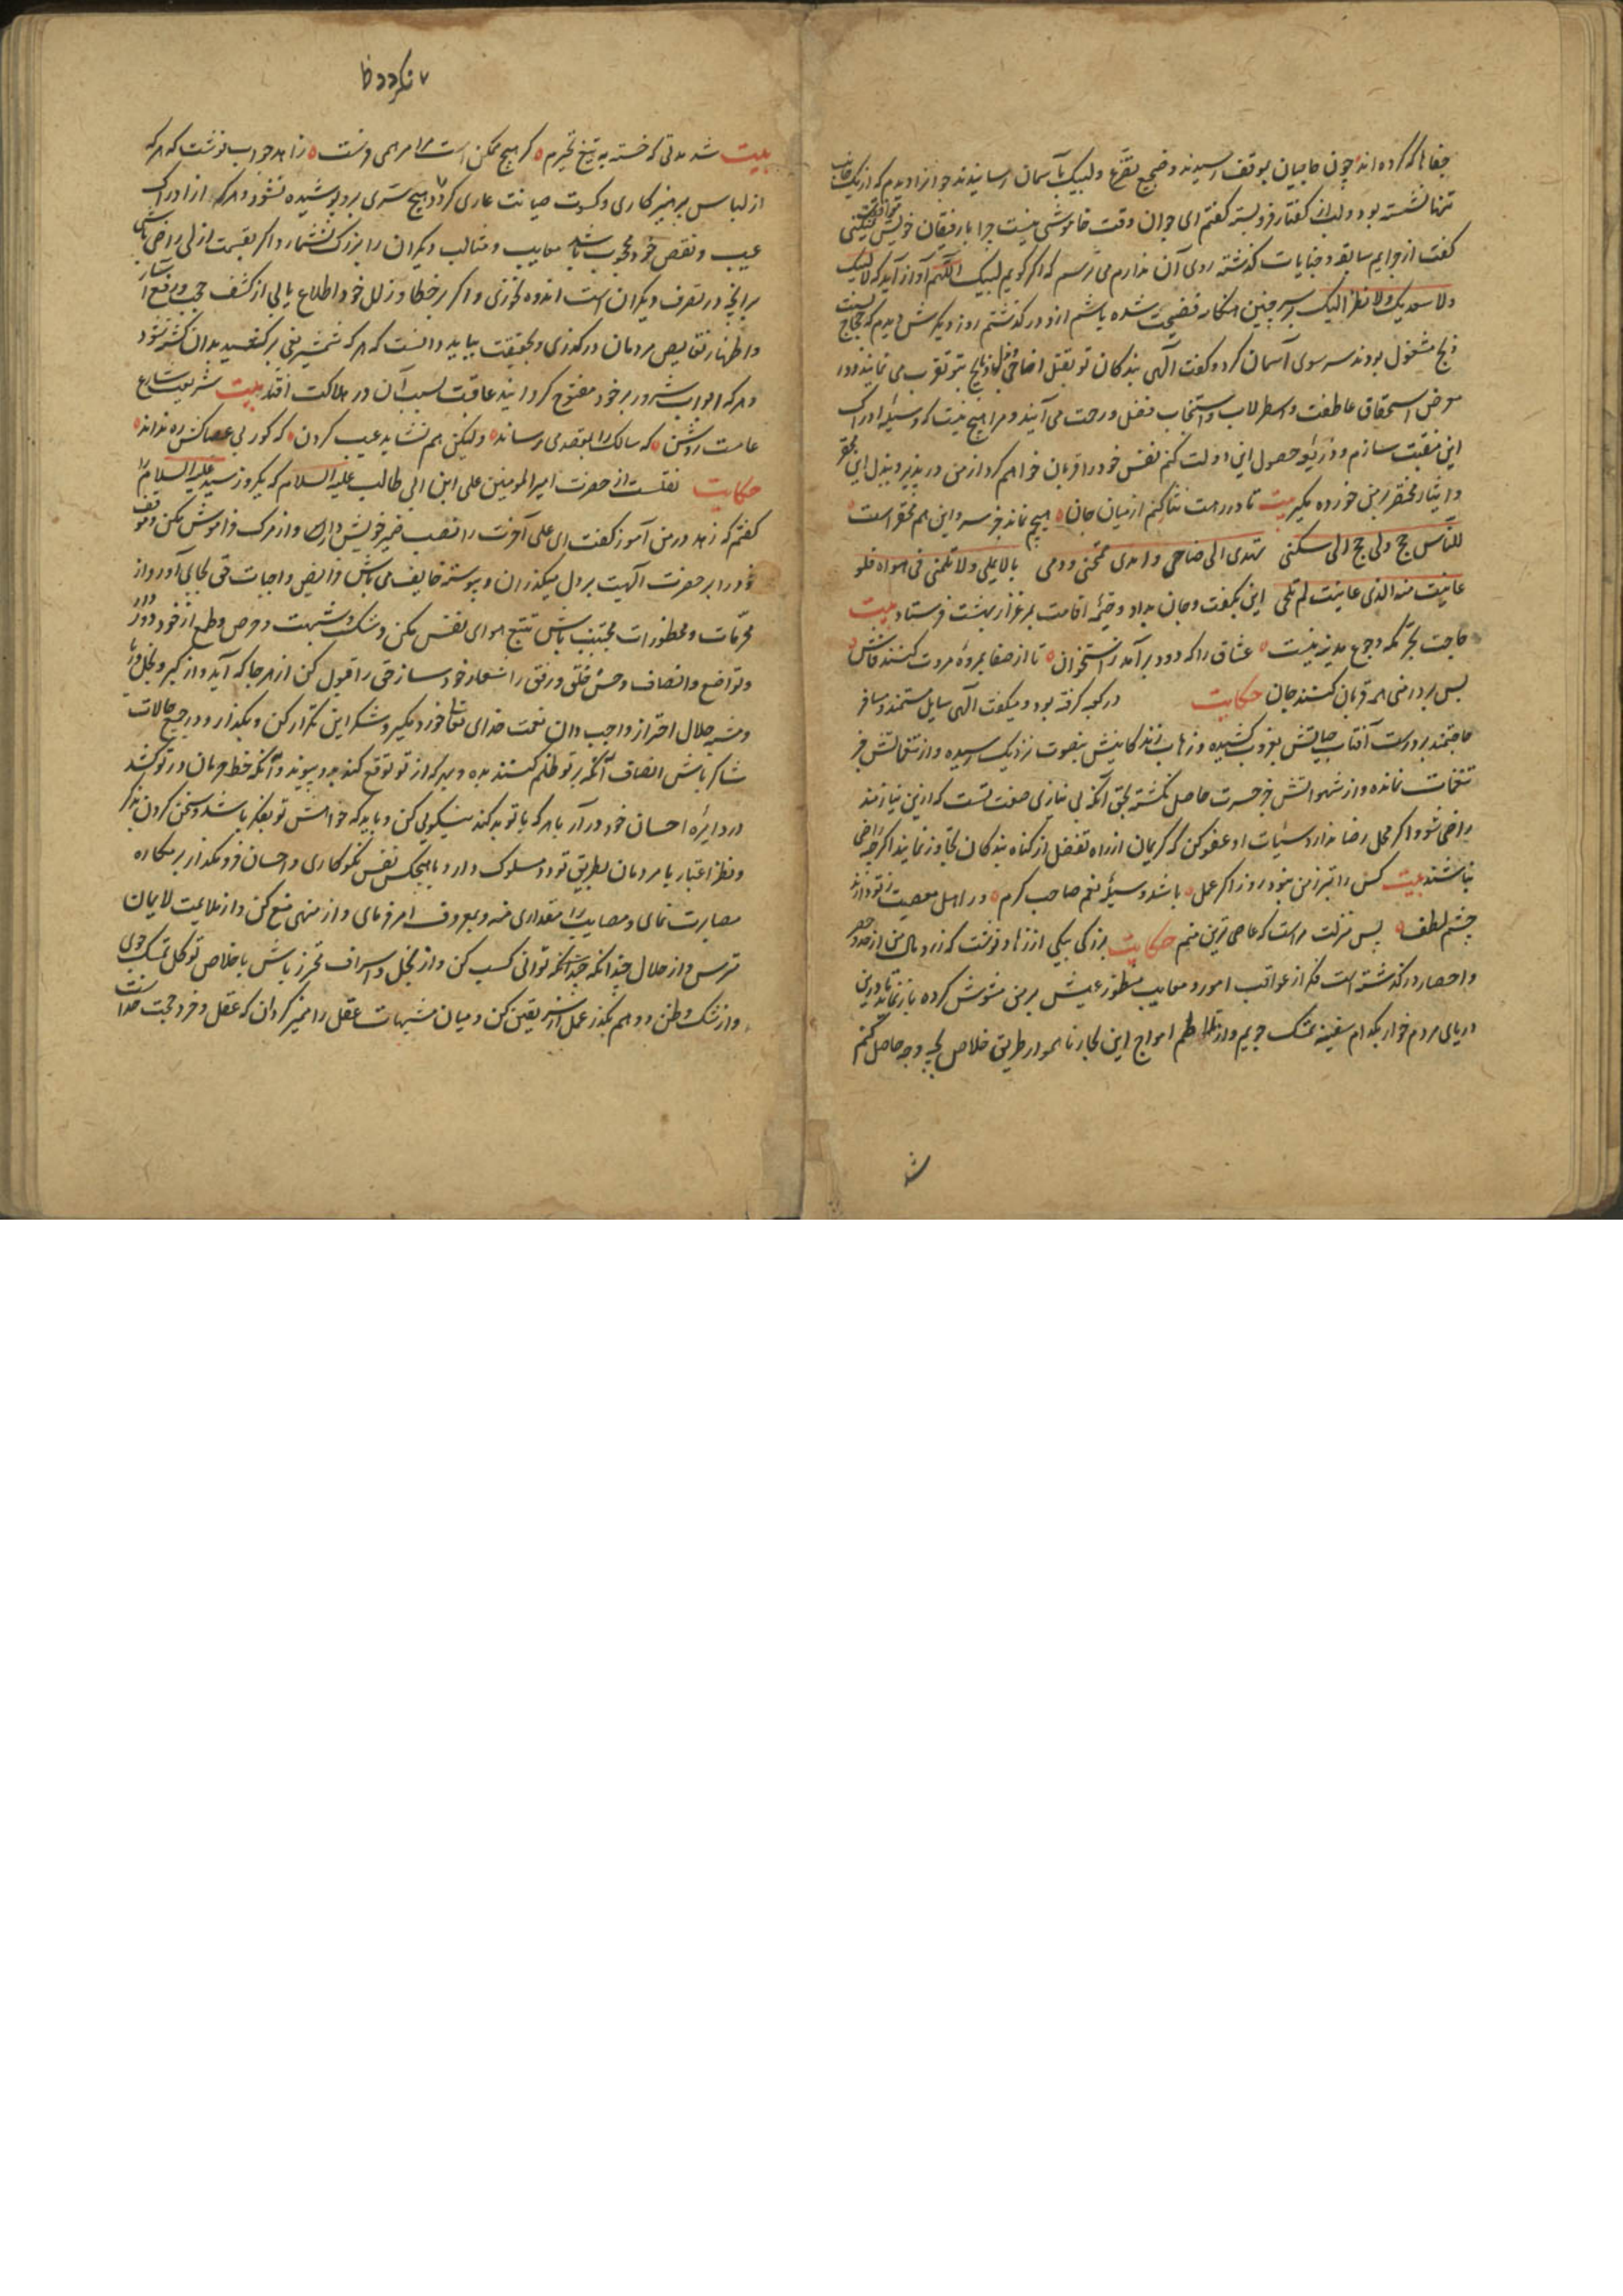 جفاها که کرده اند چون حاجیان بموقف رسیدند و ضجیع تضرع و لبیک بآسمان رسانیدند جوانرا دیدم که از یک جانب
تنها نشسته بود و لب از گفتار فروبسته گفتم ای جوان وقت خاموشی نیست چرا با رفیقان خویش موافقت نمیکنی
گفت از جرایم سابقه و جنایات گذشته روی آن ندارم می ترسم که اگر گویم لبیک اللهم آواز آید که لا لبیک
ولا سعدیک ولا نظر الیک پس چنین فضیحت شده باشم ازو در گذشتم روز دیگرش دیدم که حجاج
ذبح مشغول بودند سر سوی آسمان کرد و گفت الهی بندگان تو بقتل اضاحی و ذبایح بتو تقرب می نمایند و در
معرض استحقاق عاطفت و استجلاب فضل و رحمت می آیند و مرا هیچ نیست که وسیله ادراک
این منقبت سازم و ذریعه حصول این دولت کنم نفس خود را قربان خواهم کرد از من در پذیر و بذل این محقر
و ایثار مختصر برمن خورده مگیر بیت تا در رهت نثار کنم از میان جان هیچم نماند جز سر و این هم محقر است
للناس حج ولی حج الی سکنی تهدی الاضاحی و اهدی مهجتی و دمی
عاینت منه الذی عاینت لم تلم این بگفت و جان بداد و خیمه اقامت بمرغزار بهشت فرستاد بیت
حاجت بجز تکه و جمع مدینه نیست عشاق را که دود برآمد ز استخوان تا از صفا بمروه مروت کنند فاش
پس بر در منی همه قربان کنند جان حکایت در کعبه گرفته بود و میگفت الهی سایل مستمند و مسافر
حاجتمند بر درت آفتاب حیاتش بغروب کشیده و زهاب زندگانیش بفوت نزدیک رسیده و از تنعماتش جز
تبعات نمانده و از شهواتش جز حسرت حاصل نگشته بحق آنکه بی نیازی صفت تست که ازین نیازمند
راضی شو و اگر محل رضا ندارد سیئات او عفو کن که کریمان از راه تفضل از گناه بندگان تجاوز نمایند اگرچه راضی
نباشند بیت کس را بتر از من نبود روز اگر عمل باشد وسیله نعم صاحب کرم در اهل معصیت ز تو دارند
چشم لطف پس منزلت مراست که عاصی ترین منم حکایت بزرگی بیکی از زهاد نوشت که زرد و مال من از حد و حصر
و احصا درگذشته است فکر از عواقب امور و معایب عیش برمن مشوش کرده باز نماید تا درین
دریای مردم خوار بکدام سفینه تمسک جویم و از تلاطم امواج این بحار ناهموار طریق خلاص بچه وجه حاصل کنم
ش
نگردد ظ
بیت شد مدتی که خسته به تیغ تحیرم گر هیچ ممکن است مرا مرهمی فرست زاهد جواب نوشت که هر که
از لباس پرهیزکاری و کسوت صیانت عاری گردد هیچ ستری برو پوشیده نشود و هر که از ادراک
عیب و نقص خود محجوب باشد معایب و مثالب دیگران را بزرگ نشمارد و اگر بقسمت ازلی راضی باشی
برآنچه در تصرف دیگران است اندوه نخوری و اگر بر خطا و زلل خود اطلاع یابی از کشف حجب و رفع استار
و اظهار نقایص مردمان درگذری و بحقیقت بباید دانست که هر که شمشیر بغی برکشد بدان کشته شود
و هر که ابواب شرور بر خود مفتوح گرداند عاقبت بسبب آن در هلاکت افتد بیت شریعت شارع
عامست روشن که سالک را بمقصد می رساند ولیکن هم نشاید عیب کردن که کور بی عصاکش ره نداند
حکایت نقلست از حضرت امیر المومنین علی ابن ابی طالب علیه السلام که یکروز سید علیه السلام را
گفتم که زهد در من آموز گفت ای علی آخرت را نصب ضمیر خویش دار و از مرگ فراموش مکن و موقف
خود را بر حضرت الهیت بر دل میگذران و پیوسته خایف می باش فرایض و واجبات حق بجای آور و از
محرمات و محظورات مجتنب باش تتبع هوای نفس مکن و شک و شبهت و حرص و طمع از خود دور دار
و تواضع و انصاف و حسن خلق و رفق را شعار خود ساز حق را قبول کن از هر جا که آید و از کبر و بخل و ریا
و منیت جلال احتراز واجب دان نعمت خدای تعالی خورد مگیر و شکر این تکرار کن و بگذار و در جمیع حالات
شاکر باش انصاف آنکه بر تو ظلم کنند بده و هر که از تو توقع کند بدو پیوند و آنکه خط حرمان در تو کشد
در دایره احسان خود درآر با هر که با تو بد کند نیکویی کن و باید که خوامش تو بفکر باشد و سخن کردن بذکر
و نظر اعتبار با مردمان بطریق تودد سلوک دار و با هیچکس نفس نکوکاری و احسان فرو مگذار بر مکاره
مصابرت نمای و مصایب را مقداری منه و بمعروف امر فرمای و از منهی منع کن و از ملامت لایمان
مترس و از حلال چندانکه توانی کسب کن و از بخل و اسراف محترز باش با خلاص توکل تمسک جوی
و از شک و ظن و وهم بگذر عمل از سر یقین کن و میان مشبهات عقل را ممیز گردان که عقل و خرد حجت خداست